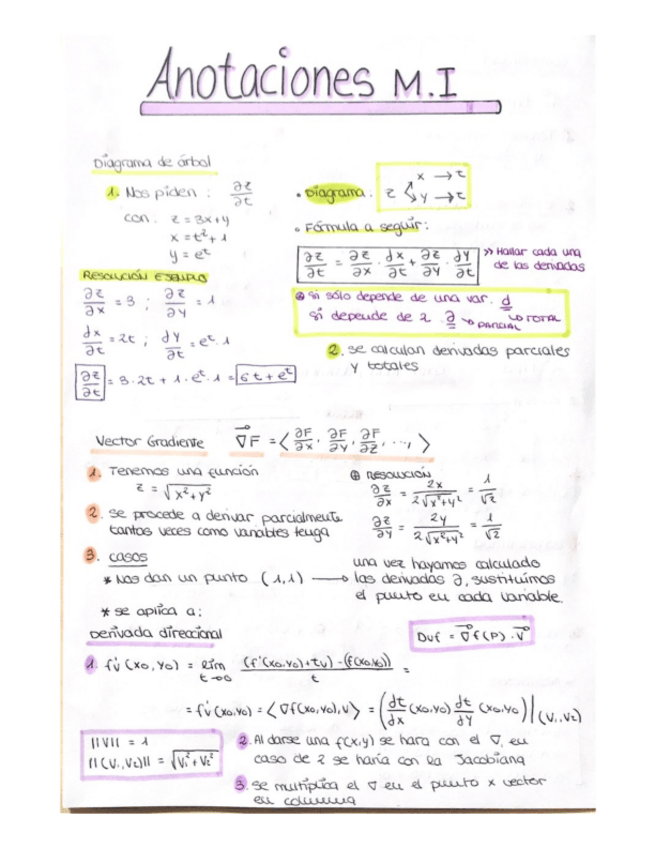 Anotaciones M.I
Diagrama de árbol
1. Nos piden : ∂z/∂t
con: z = 3x+y
x = t²+1
y = eᵗ
• Diagrama : z < x → t
y → t
• Fórmula a seguir:
∂z/∂t = ∂z/∂x · dx/∂t + ∂z/∂y · dy/∂t
» Hallar cada una
de las derivadas
RESOLUCIÓN EJEMPLO
∂z/∂x = 3 ; ∂z/∂y = 1
dx/∂t = 2t ; dy/∂t = eᵗ·1
∂z/∂t = 3·2t + 1·eᵗ·1 = 6t+eᵗ
⊕ Si sólo depende de una var. d → TOTAL
Si depende de 2. ∂ → PARCIAL
2. se calculan derivadas parciales
y totales
Vector Gradiente ∇F = < ∂F/∂x, ∂F/∂y, ∂F/∂z, ..., >
1. Tenemos una función
z = √x²+y²
2. se procede a derivar parcialmente
tantas veces como variables tenga
⊕ RESOLUCIÓN
∂z/∂x = 2x/2√x²+y² = 1/√2
∂z/∂y = 2y/2√x²+y² = 1/√2
3. casos
* Nos dan un punto (1,1) →
una vez hayamos calculado
las derivadas ∂, sustituimos
el punto en cada variable.
* se aplica a:
Derivada direccional
Duf = ∇f(P)·V
1. f'v (xo, yo) = lim t→0 (f'(xo,yo)+tv) - (f(xo,yo))/t =
= f'v (xo,yo) = <∇f(xo,yo),v> = (dt/dx (xo,yo) dt/dy (xo,yo))|(v₁,v₂)
||V|| = 1
||(V₁,V₂)|| = √V₁²+V₂²
2. Al darse una f(x,y) se hara con el ∇, en
caso de 2 se haría con la Jacobiana
3. se multiplica el ∇ en el punto x vector
en columna